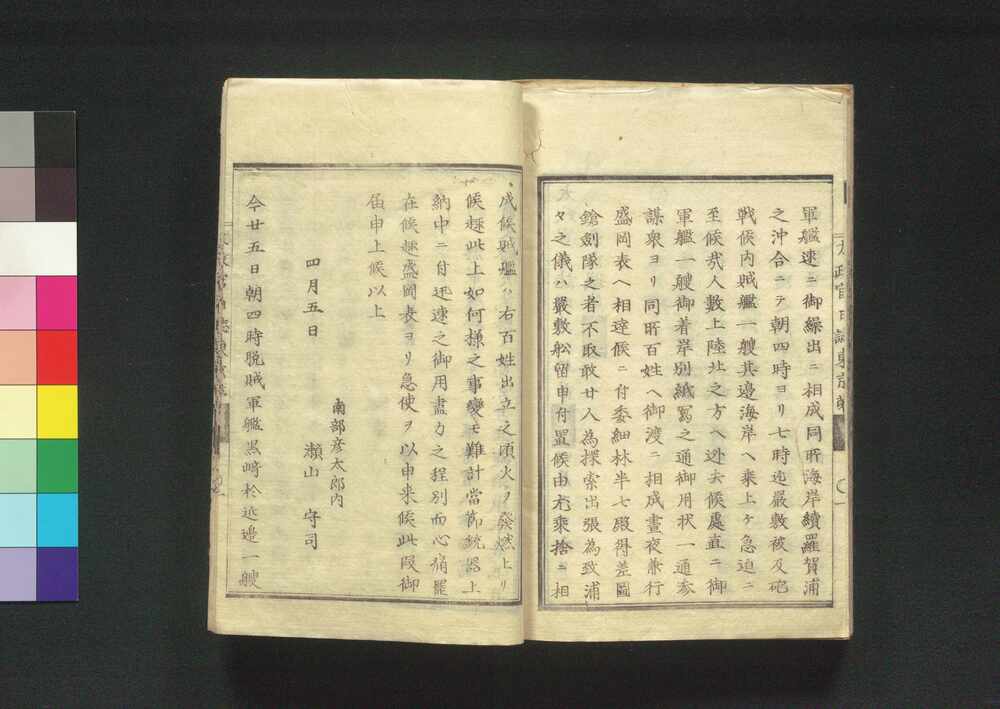 軍艦速ニ御繰出ニ相成同所海岸續羅賀浦
之沖合ニテ朝四時ヨリ七時迄嚴敷被及砲
戰候内賊艦一艘其邊海岸ヘ乘上ケ急迫ニ
至候哉人數上陸北之方ヘ迯去候處直ニ御
軍艦一艘御着岸別紙寫之通御用状一通参
謀衆ヨリ同所百姓ヘ御渡ニ相成晝夜兼行
盛岡表ヘ相達候ニ付委細林半七殿得差圖
鎗劍隊之者不取敢廿人為探索出張為致浦
々之儀ハ嚴敷舩留申付置候由尤乘捨ニ相
太政官日誌東京
成候賊艦ハ右百姓出立之頃火ヲ發燃上リ
候趣此上如何様之事變モ難計當節銃器上
納中ニ付迅速之御用盡力之程別而心痛罷
在候趣盛岡表ヨリ急使ヲ以申来候此段御
届申上候以上
四月五日
南部彦太郎内
瀬山　守司
今廿五日朝四時脱賊軍艦黒﨑於近邉一艘